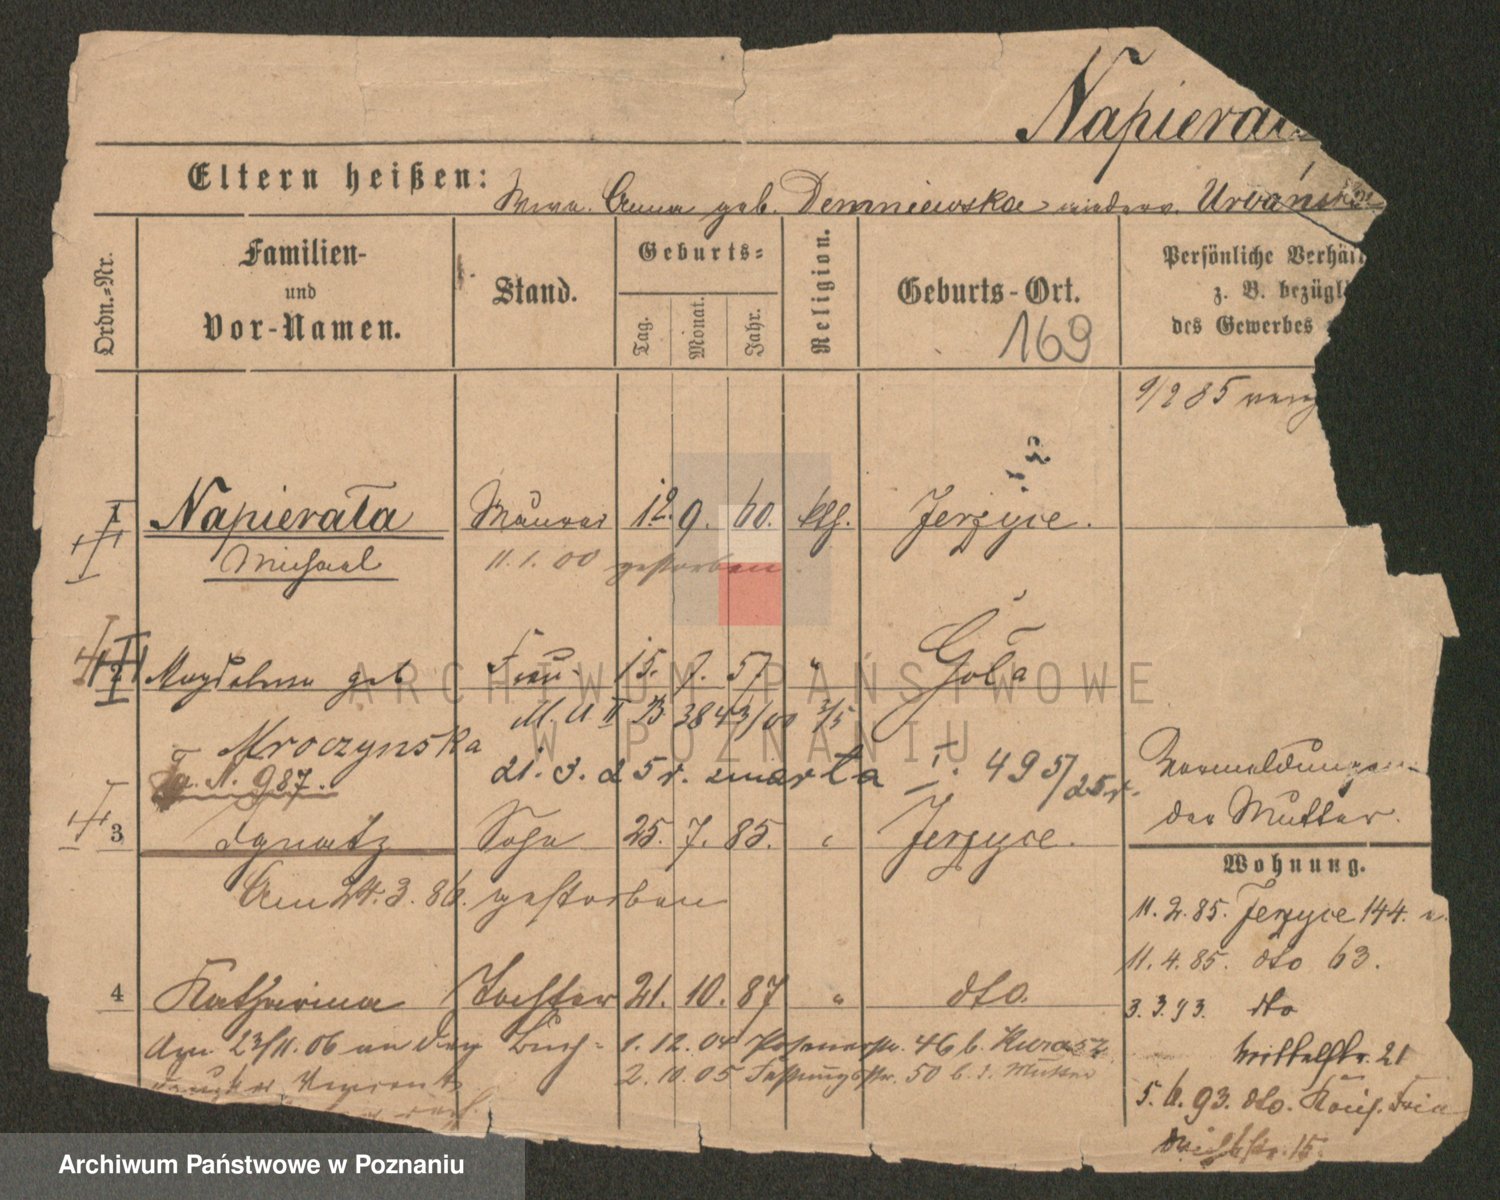 Napierała
Eltern heißen: Anna geb. Demniewska Urbańska
Ordn.-Nr.
Familien-
und
Vor-Namen.
Stand.
Geburts-
Tag.
Monat.
Jahr.
Religion.
Geburts-Ort.
169
Persönliche Verhäl
z. B. bezügl
des Gewerbes
9/2 85
I Napierała Maurer 12. 9. 60. kth. Jerzyce.
Michael 11.1.00 gestorben.
2 Magdalena geb Frau 15. 7. 57. " Góla
M. U II B 3843/00 3/5
Mroczynska
N. 987. 21. 3. 25 r. zmarła I. 495/25 r.
Vermeldungen
der Mutter.
3 Ignatz Sohn 25. 7. 85. " Jerzyce.
Am 24. 3. 86. gestorben
Wohnung.
11. 2. 85. Jerzyce 144.
11. 4. 85. dto 63.
4 Katharina Tochter 21. 10. 87 " dto.
3. 3. 93. dto
Am 23/11.06 an den Buch- 1. 12. 04 Posenerstr. 46 b.
Mittelstr. 21
2. 10. 05 50 b. d. Mutter
5. 6. 93. dto.
15.
ARCHIWUM PAŃSTWOWE
W POZNANIU
Archiwum Państwowe w Poznaniu